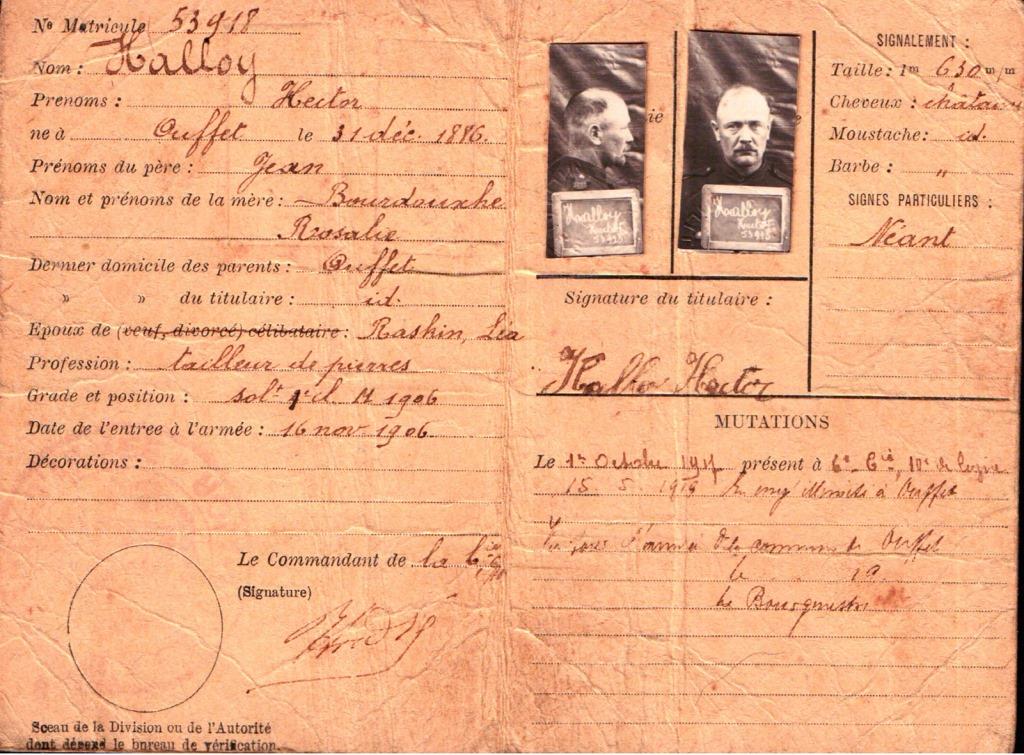 No Matricule 53918
Nom : Halloy
Prenoms : Hector
ne à Ouffet le 31 déc. 1886.
Prénoms du père : Jean
Nom et prénoms de la mère : Bourdouxhe
Rosalie
Dernier domicile des parents : Ouffet
» » du titulaire : id.
Epoux de (veuf, divorcé) célibataire : Raskin, Léa
Profession : tailleur de pierres
Grade et position : solt 1e cl. M 1906
Date de l'entree à l'armée : 16 nov 1906
Décorations :
Le Commandant de la 6 Cie
(Signature)
Sceau de la Division ou de l'Autorité
dont dépend le bureau de vérification.
Halloy
Hector
53918
Halloy
Hector
53918
Signature du titulaire :
Halloy Hector
SIGNALEMENT :
Taille : 1m 630 m/m
Cheveux : châtains
Moustache : id.
Barbe : "
SIGNES PARTICULIERS :
Néant
MUTATIONS
Le 1r Octobre présent à 6e Cie, 10e de ligne
15 5 1919 En congé illimité à Ouffet
commune de Ouffet
le 19
Le Bourgmestre